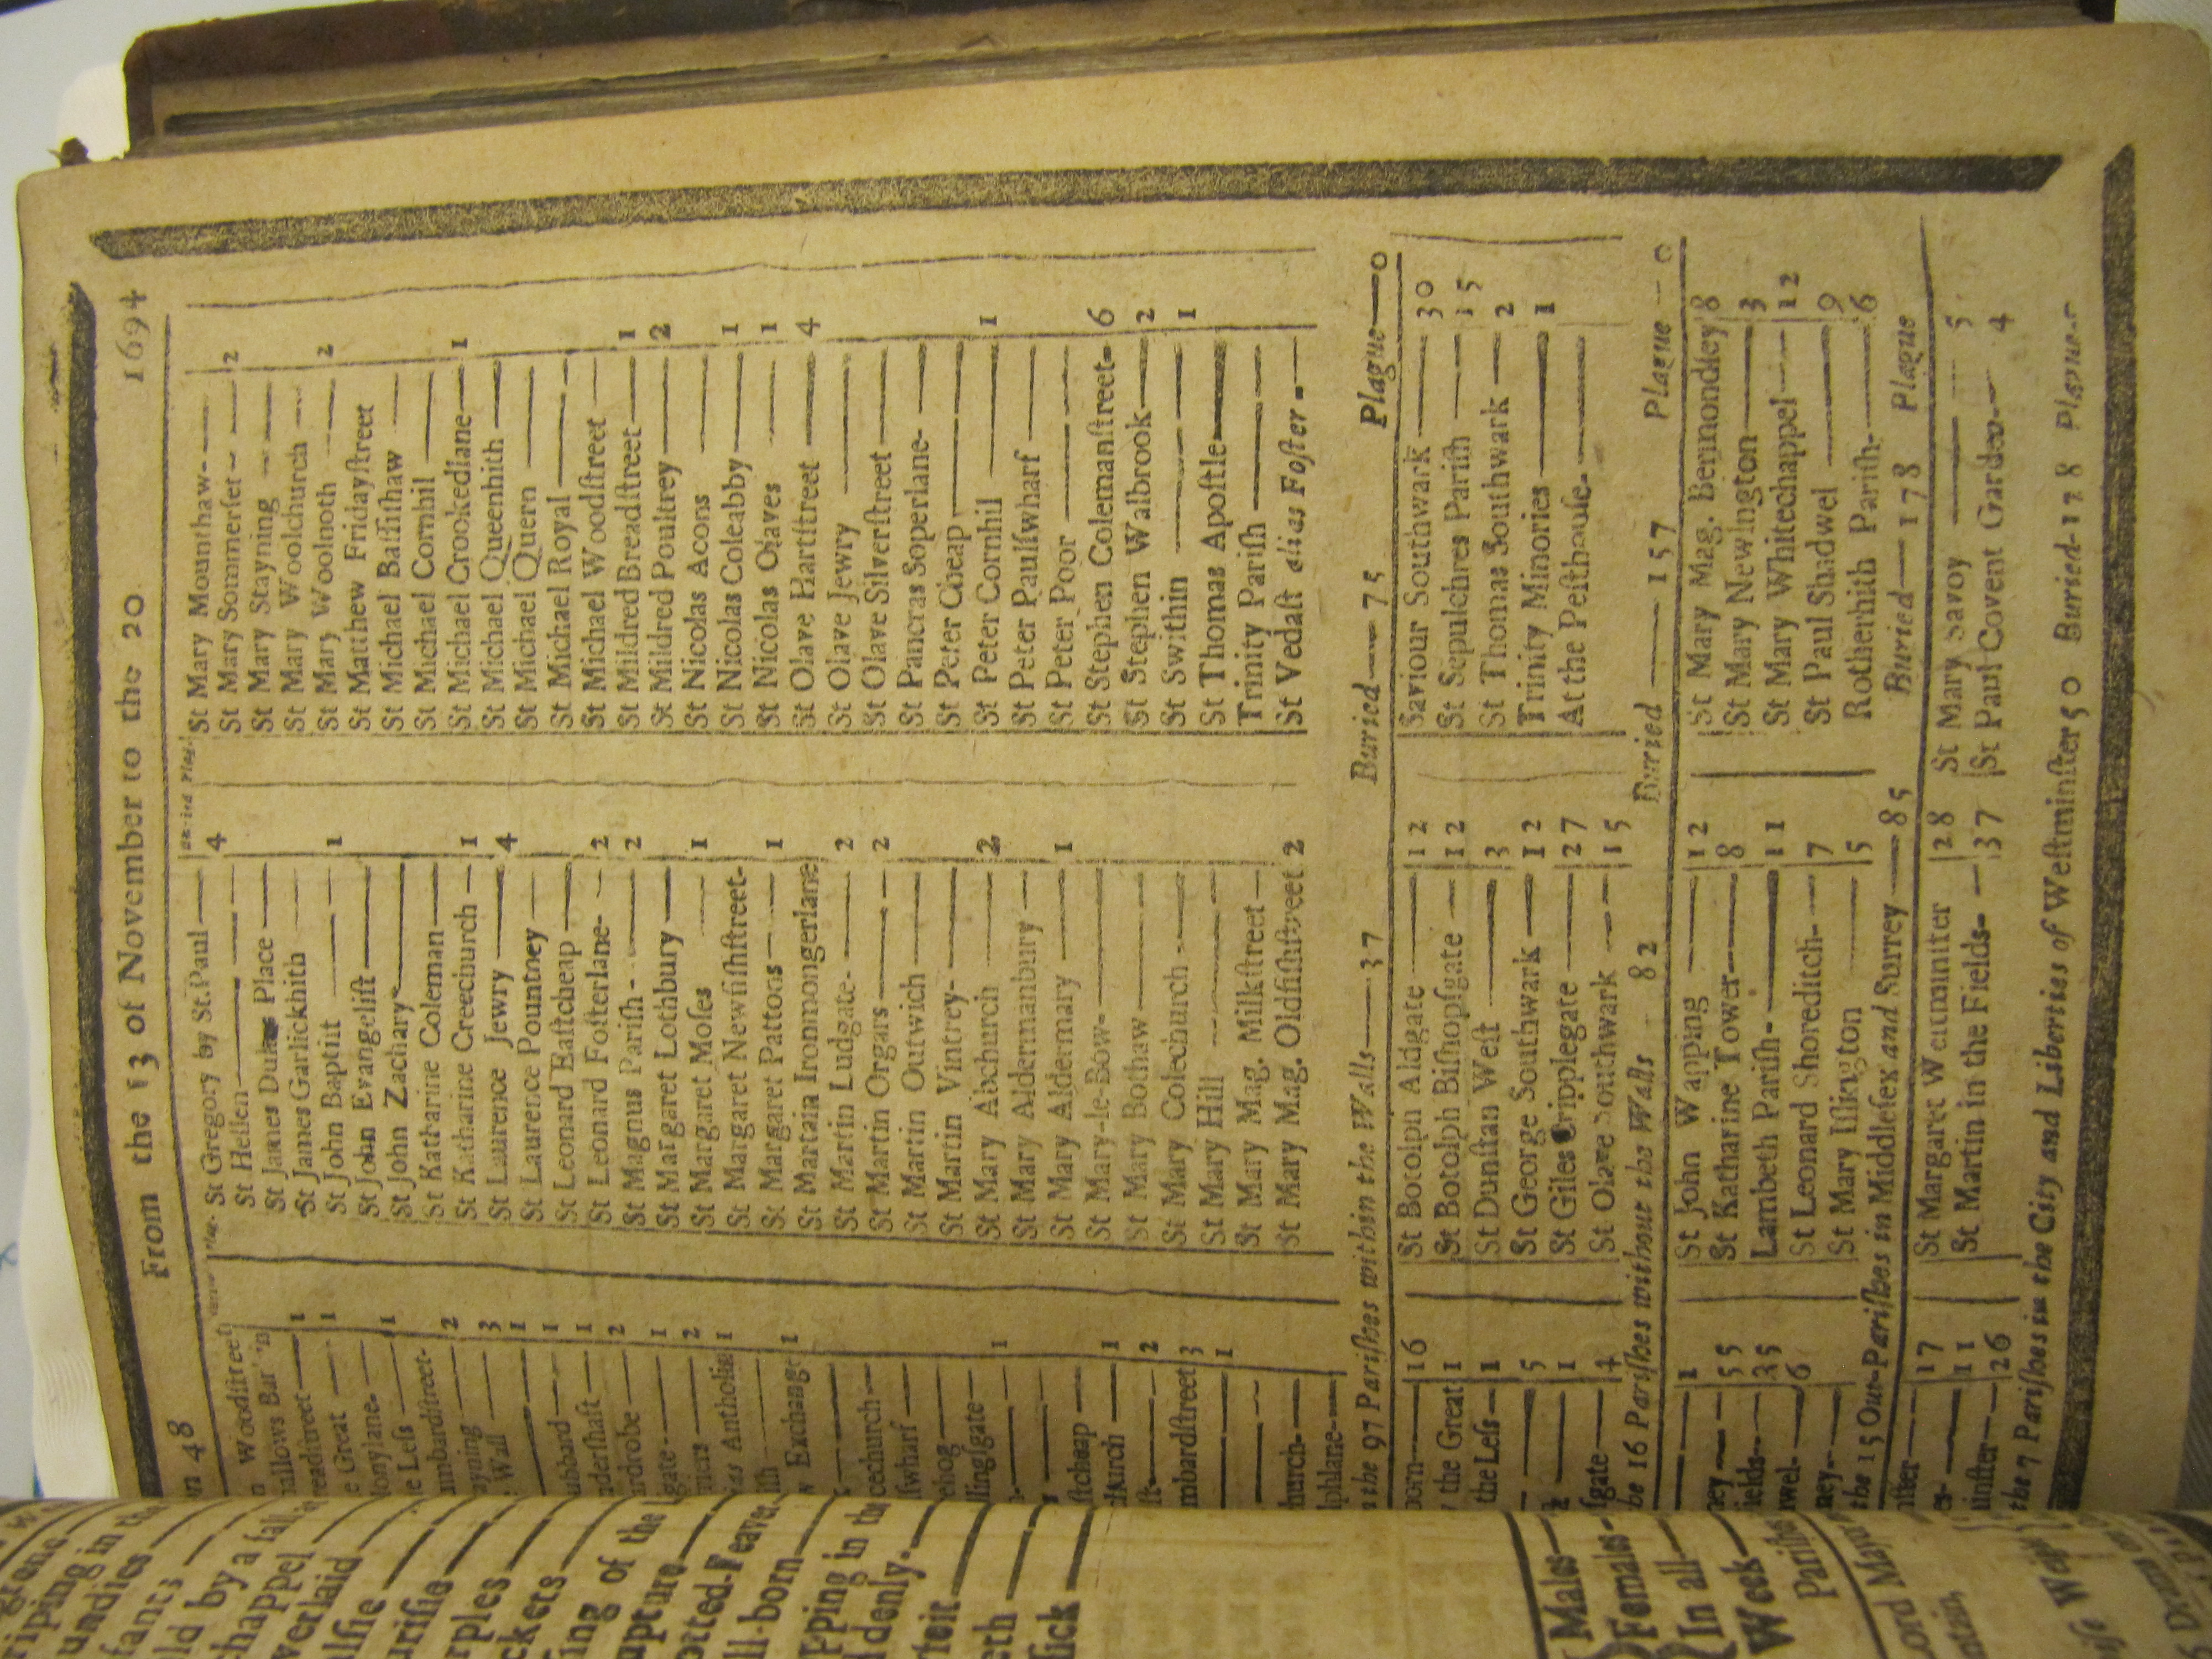 From the 13 of November to the 20. 1694
48
Woodstreet
hallows Bar
readstreet— 1
e Great — 1
Honylane-
e Less — 1
umbardstreet-
ayning — 2
Wall — 3
— 1
ubbard— 1
ndershaft — 1
ardrobe — 2
gate — 1
2
as Antholin 1
w Exchange 1
cechurch—
swharf —
ehog—
llinggate—
— 1
stcheap —
dchurch — 1
2
mbardstreet 3
— 1
hurch-
lphlane-
St Gregory by St.Paul — 4
St Hellen—
St James Dukes Place —
St James Garlickhith
St John Baptist — 1
St John Evangelist —
St John Zachary—
St Katharine Coleman—
St Katharine Creechurch — 1
St Laurence Jewry — 4
St Laurence Pountney —
St Leonard Eastcheap —
St Leonard Fosterlane- — 2
St Magnus Parish - — 2
St Margaret Lothbury —
St Margaret Moses — 1
St Margaret Newfishstreet-
St Margaret Pattons — 1
St Martain Ironmongerlane
St Martin Ludgate- — 2
St Martin Orgars — 2
St Martin Outwich —
St Martin Vintrey- —
St Mary Abchurch — 2
St Mary Aldermanbury —
St Mary Aldermary — 1
St Mary-le-Bow- —
St Mary Bothaw —
St Mary Colechurch -
St Mary Hill —
St Mary Mag. Milkstreet —
St Mary Mag. Oldfishstreet 2
St Mary Mounthaw- —
St Mary Sommerset - — 2
St Mary Stayning —
St Mary Woolchurch —
St Mary Woolnoth — 2
St Matthew Fridaystreet
St Michael Bassishaw —
St Michael Cornhil —
St Michael Crookedlane— 1
St Michael Queenhith —
St Michael Quern —
St Michael Royal —
St Michael Woodstreet —
St Mildred Breadstreet— 1
St Mildred Poultrey — 2
St Nicolas Acons —
St Nicolas Coleabby— 1
St Nicolas Olaves — 1
St Olave Hartstreet — 4
St Olave Jewry —
St Olave Silverstreet —
St Pancras Soperlane- —
St Peter Cheap —
St Peter Cornhil — 1
St Peter Paulswharf —
St Peter Poor —
St Stephen Colemanstreet- 6
St Stephen Walbrook— 2
St Swithin — 1
St Thomas Apostle—
Trinity Parish —
St Vedast alias Foster . —
the 97 Parishes within the Walls— 37 Buried— 75 Plague— 0
16
the Great 1
the Less— 1
— 5
— 1
sgate — 4
St Botolph Aldgate — 12
St Botolph Bishopsgate — 12
St Dunstan West — 3
St George Southwark — 12
St Giles Cripplegate — 27
St Olave Southwark — 15
Saviour Southwark — 30
St Sepulchres Parish — 15
St Thomas Southwark — 2
Trinity Minories — 1
At the Pesthouse- —
the 16 Parishes without the Walls 82 Buried — 157 Plague — 0
— 1
ney — 55
ields- — 25
wel- — 6
ney- —
St John Wapping — 12
St Katharine Tower— 8
Lambeth Parish- — 11
St Leonard Shoreditch- — 7
St Mary Islington — 5
St Mary Mag. Bermondsey 8
St Mary Newington— 3
St Mary Whitechappel — 12
St Paul Shadwel — 9
Rotherhith Parish- — 6
the 15 Out-Parishes in Middlesex and Surrey — 85 Buried— 178 Plague
— 17
— 11
minster— 26
St Margaret Westminster 28
St Martin in the Fields- — 37
St Mary Savoy — 5
St Paul Covent Garden- 4
the 7 Parishes in the City and Liberties of Westminster 50 Buried-128 Plague-
ripping in the
undies
fants
ld by a fall
chappel
verlaid
alsie
urisie
rples
ckets
ing of the
upture
otted-Feaver
ll-born
pping in the
denly-
teit
eth
sick
Males—
Females-
In all—
Week—
Parishes
Lord Major